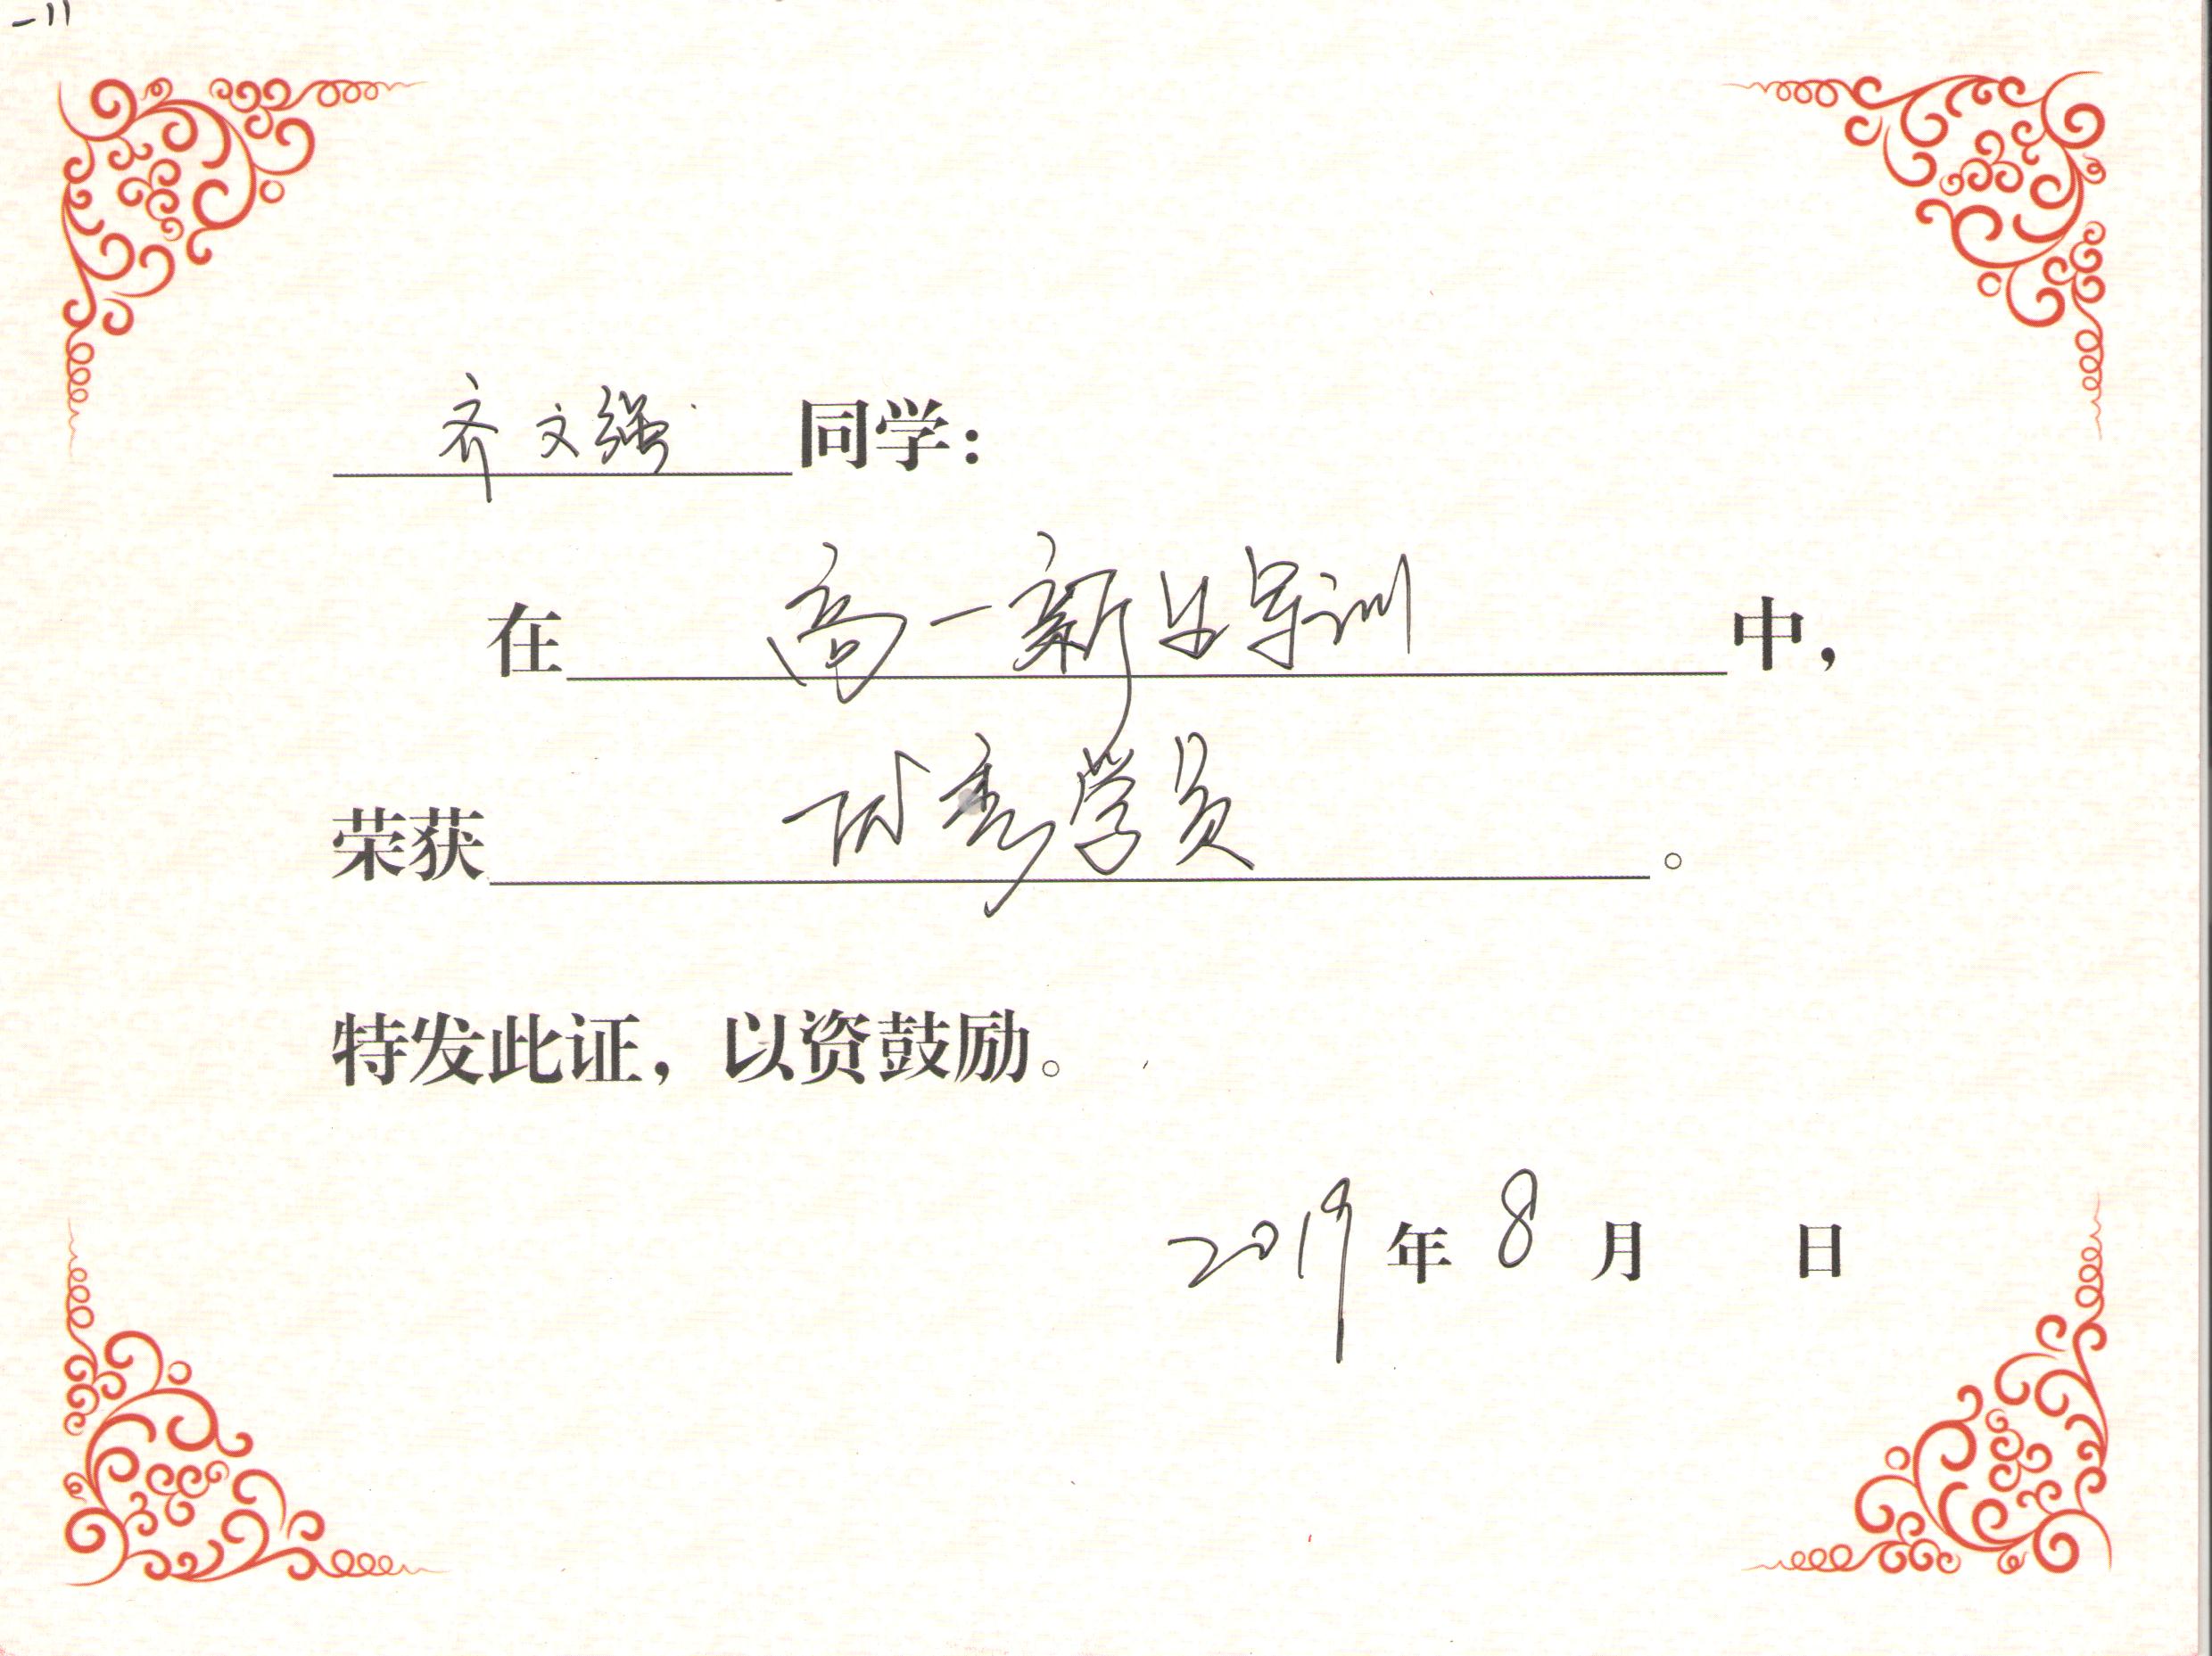 一11
齐文强同学：
在高一新生导训中，
荣获优秀学员。
特发此证，以资鼓励。
2019年8月 日